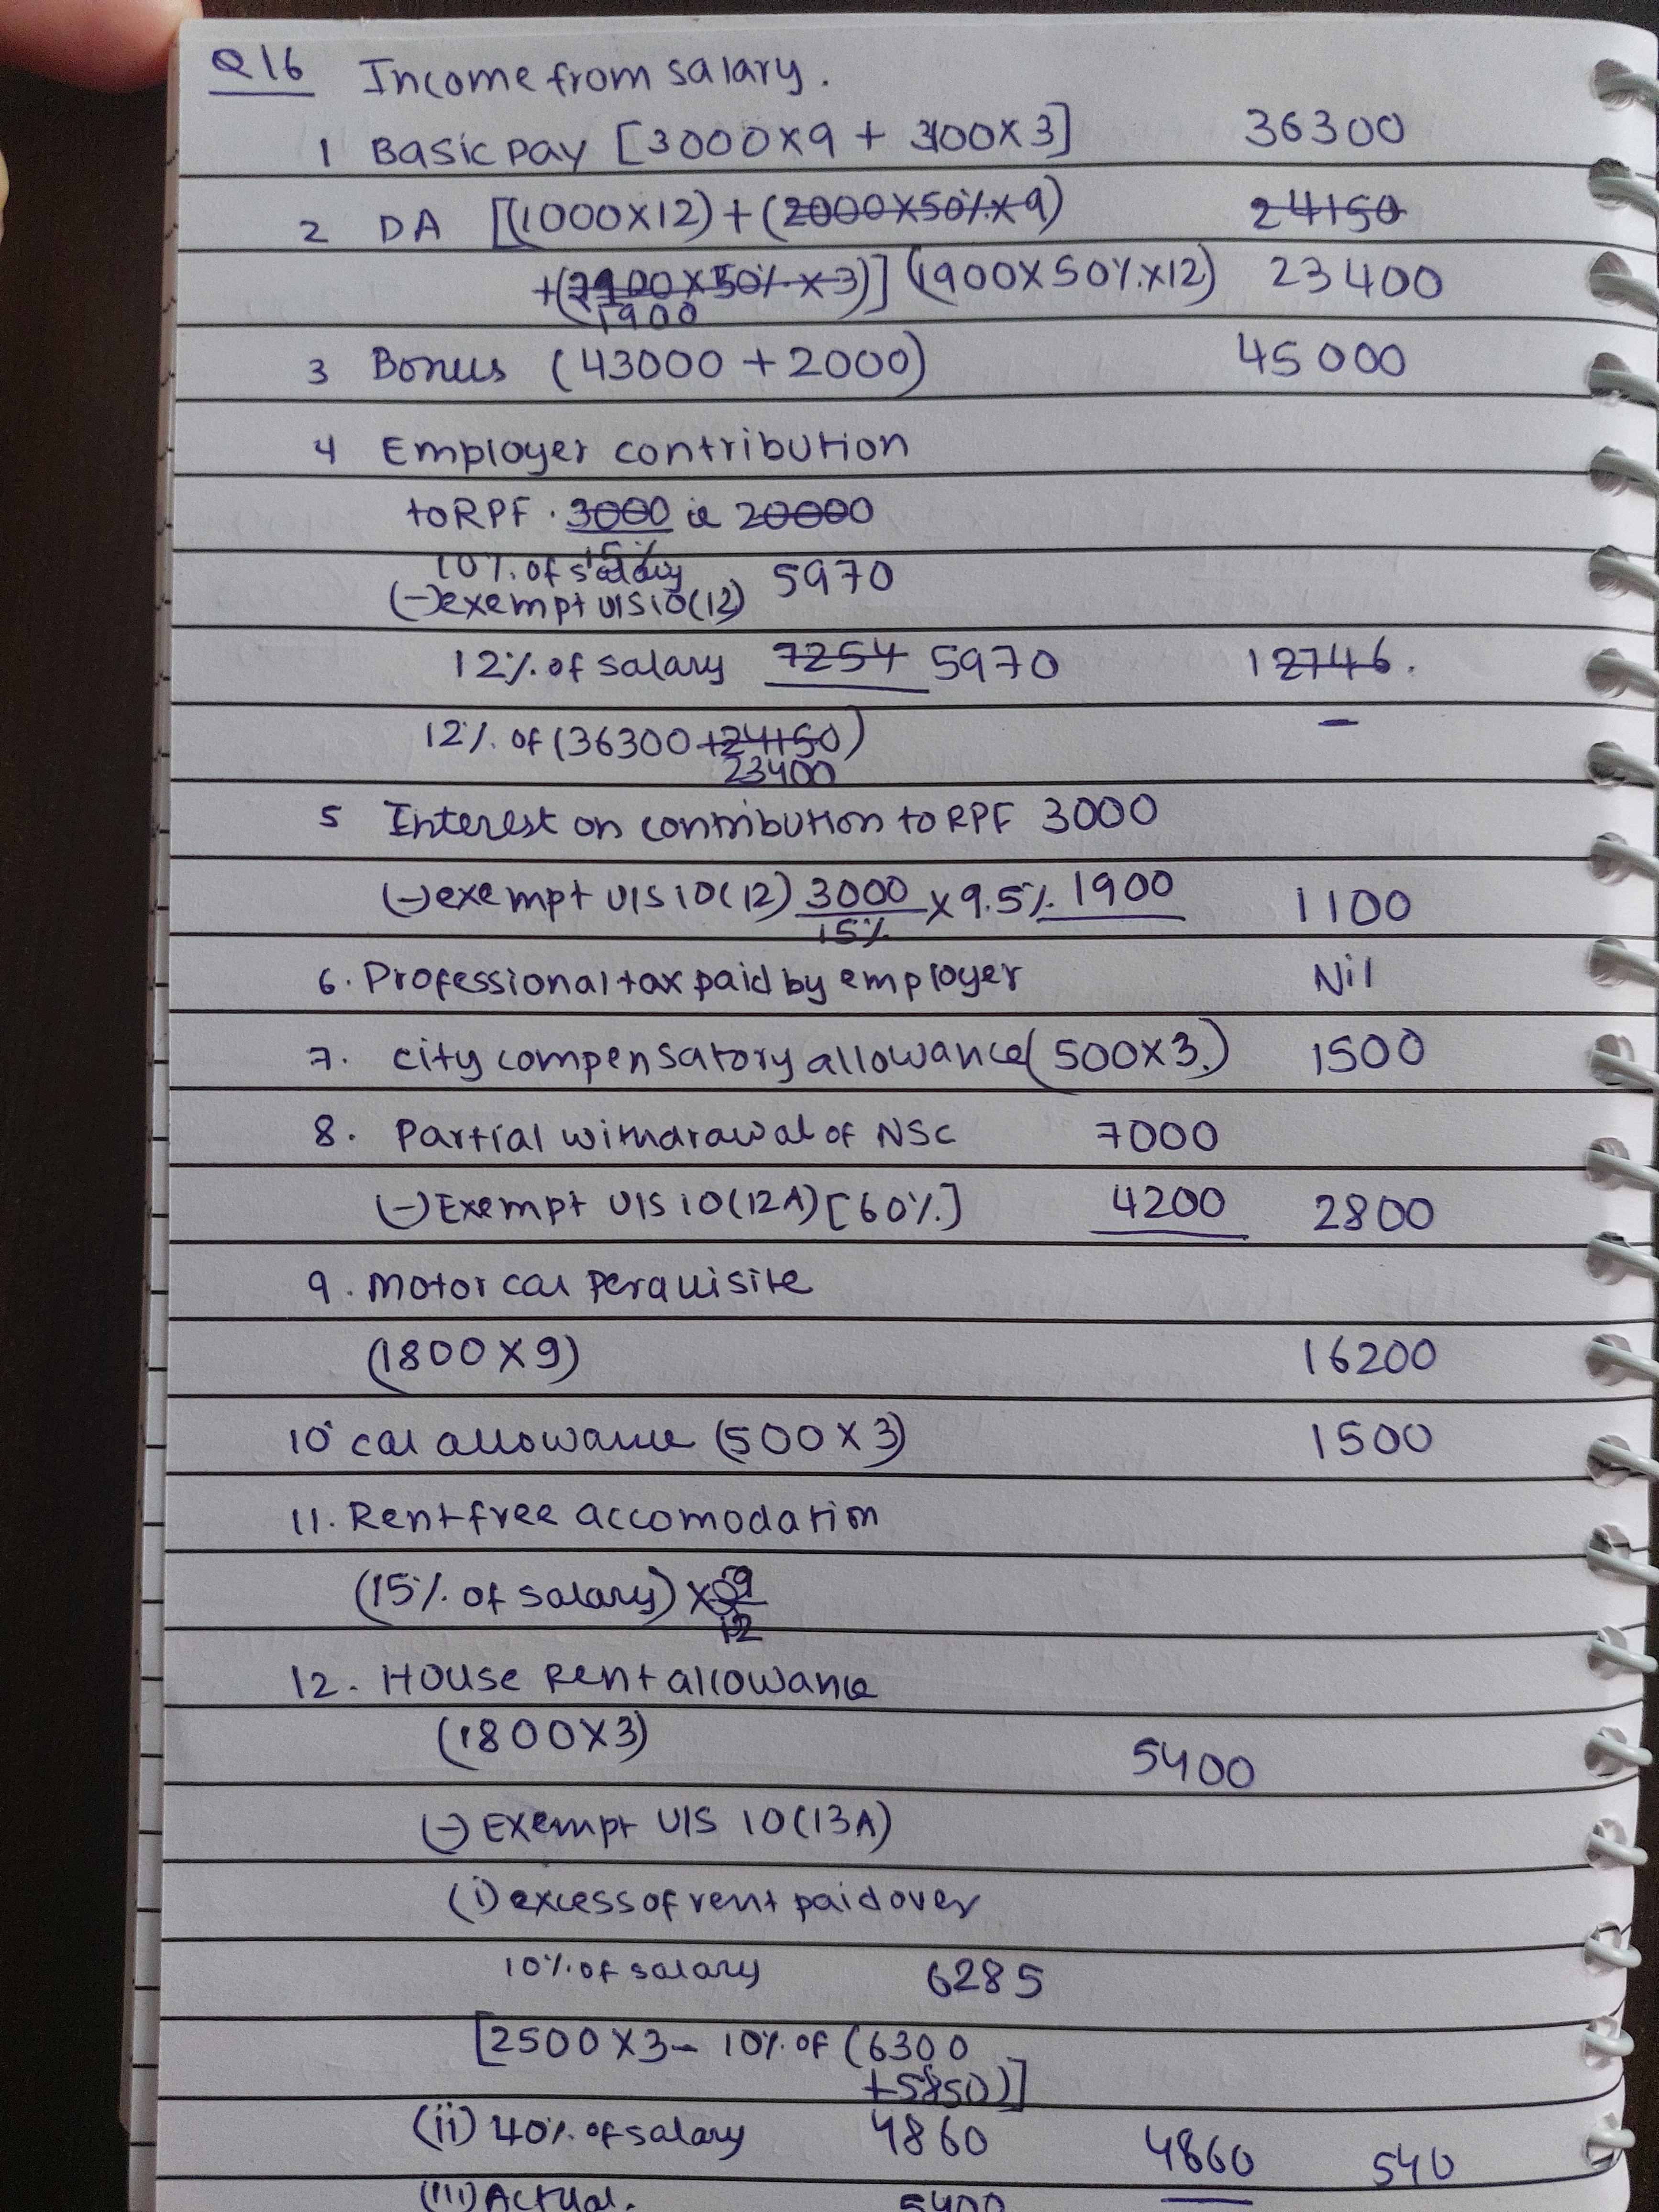 Q16 Income from salary.
1 Basic pay [3000×9 + 3100×3] 36300
2 DA [(1000×12)+(2000×50%×9) 24150
+(2100×50%×3)] (1900×50%×12) 23400
1900
3 Bonus (43000+2000) 45000
4 Employer contribution
to RPF. 3000 ie 20000
15%
10% of salary 5970
(-) exempt U/S 10(12)
12% of salary 7254 5970 12746.
12% of (36300+24150) –
23400
5 Interest on contribution to RPF 3000
(-) exempt U/S 10(12) 3000 × 9.5% 1900 1100
15%
6. Professional tax paid by employer Nil
7. City compensatory allowance (500×3.) 1500
8. Partial withdrawal of NSC 7000
(-) Exempt U/S 10(12A) [60%] 4200 2800
9. Motor car Perquisite
(1800×9) 16200
10 car allowance (500×3) 1500
11. Rent free accomodation
(15% of salary) × 9
12
12. House Rent allowance
(1800×3) 5400
(-) Exempt U/S 10(13A)
(i) excess of rent paid over
10% of salary 6285
[2500×3 – 10% of (6300
+5850)]
(ii) 40% of salary 4860 4860 540
(iii) Actual. 5400